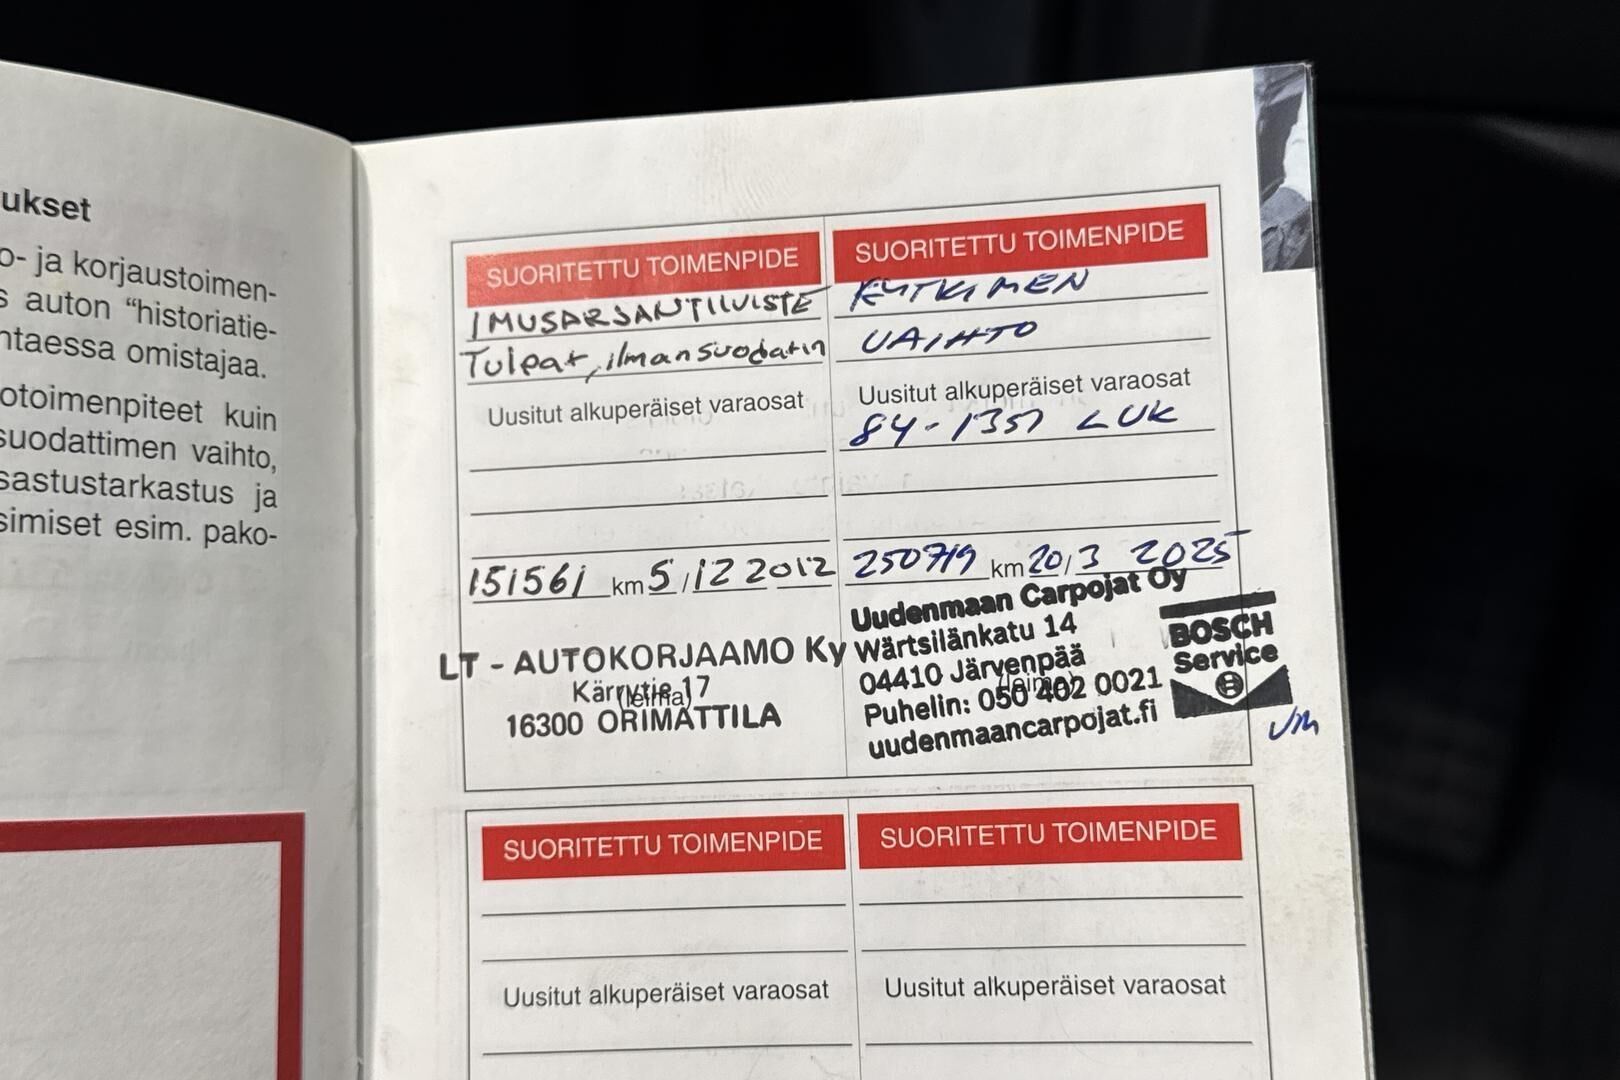 ukset
o- ja korjaustoimen-
s auton “historiatie-
ntaessa omistajaa.
otoimenpiteet kuin
suodattimen vaihto,
sastustarkastus ja
simiset esim. pako-
SUORITETTU TOIMENPIDE
IMUSARJANTIIVISTE
Tulpat, ilmansuodatin
Uusitut alkuperäiset varaosat
151561 km 5/12 2012
LT - AUTOKORJAAMO Ky
Kärrytie 17
(leima)
16300 ORIMATTILA
SUORITETTU TOIMENPIDE
KYTKIMEN
VAIHTO
Uusitut alkuperäiset varaosat
84-1351 LUK
250719 km 20/3 2025
Uudenmaan Carpojat Oy
Wärtsilänkatu 14
04410 Järvenpää
(leima)
Puhelin: 050 402 0021
uudenmaancarpojat.fi
BOSCH
Service
SUORITETTU TOIMENPIDE
Uusitut alkuperäiset varaosat
SUORITETTU TOIMENPIDE
Uusitut alkuperäiset varaosat